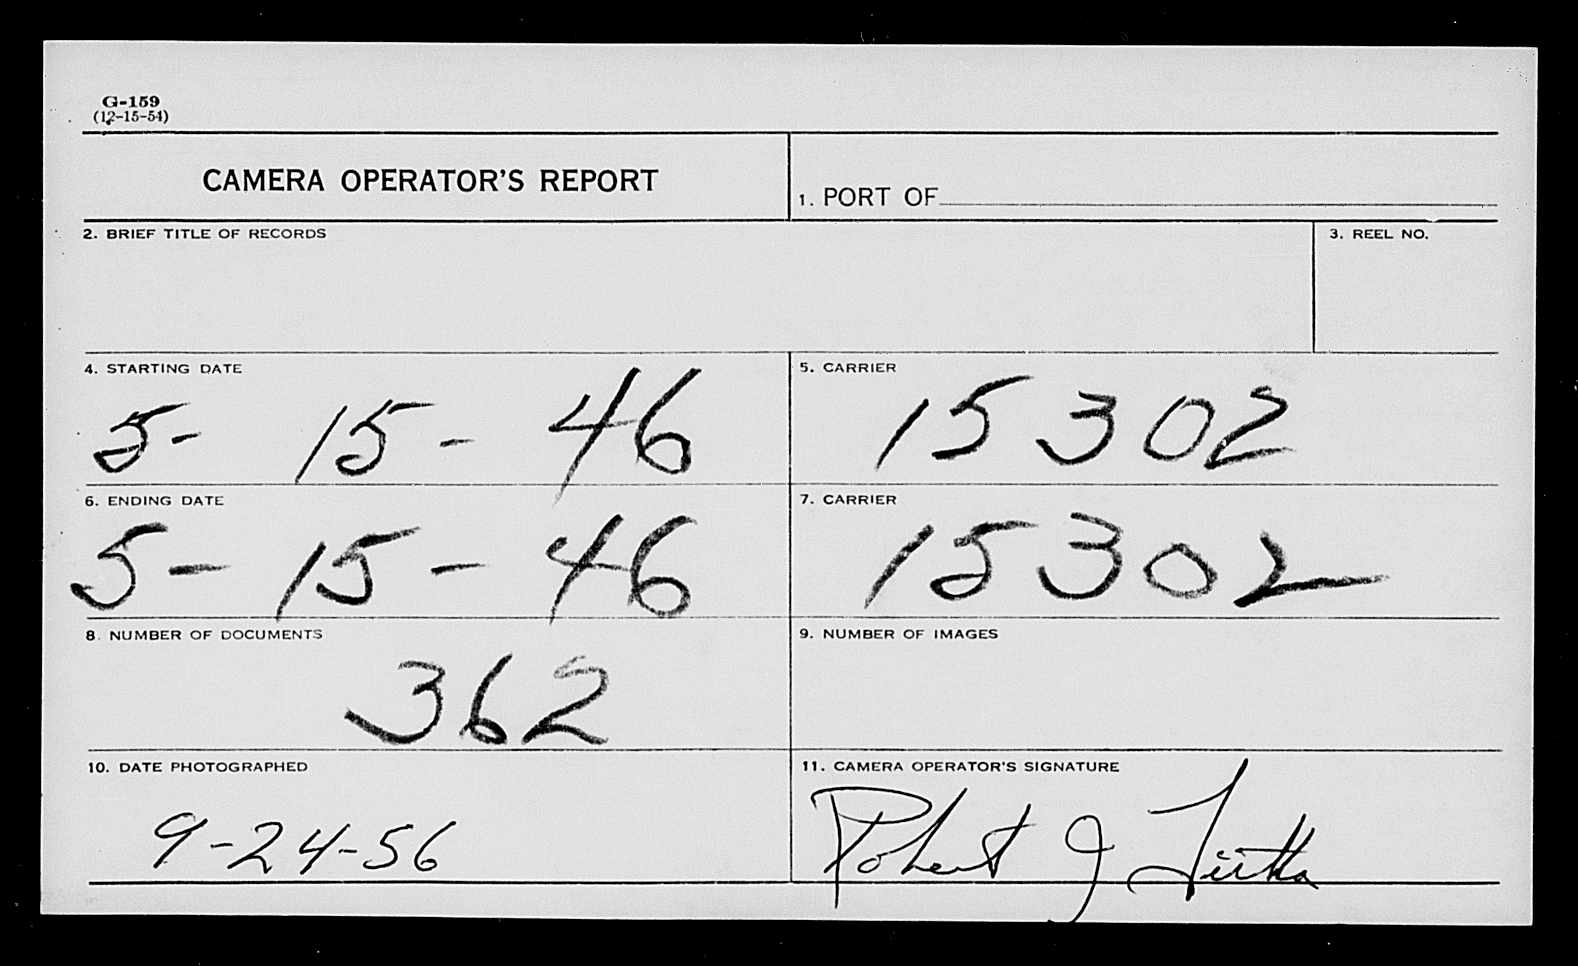 G-159
(12-15-54)
CAMERA OPERATOR'S REPORT
1. PORT OF
2. BRIEF TITLE OF RECORDS
3. REEL NO.
4. STARTING DATE
5- 15- 46
5. CARRIER
15302
6. ENDING DATE
5- 15- 46
7. CARRIER
15302
8. NUMBER OF DOCUMENTS
362
9. NUMBER OF IMAGES
10. DATE PHOTOGRAPHED
9-24-56
11. CAMERA OPERATOR'S SIGNATURE
Robert J